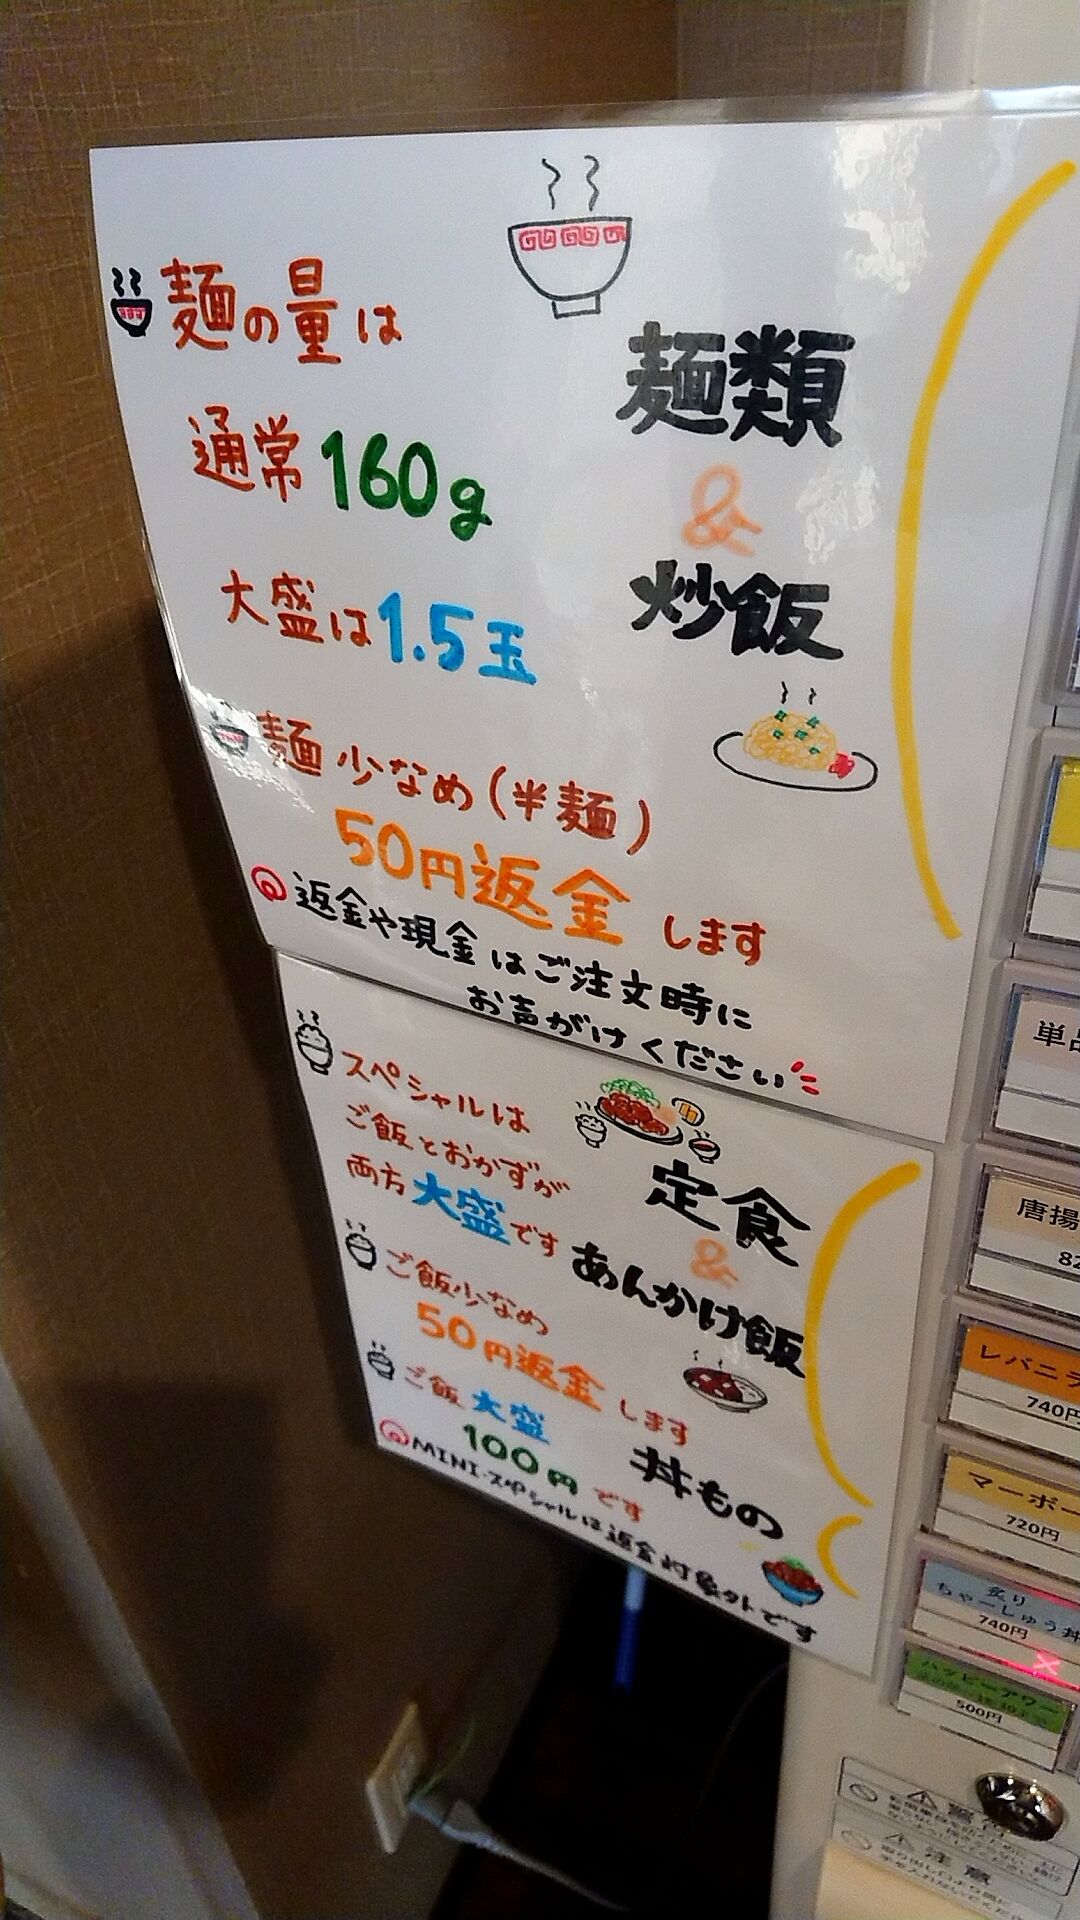 麺の量は
通常160g
大盛は1.5玉
麺少なめ(半麺)
50円返金します
返金や現金はご注文時に
お声がけください
麺類
&
炒飯
スペシャルは
ご飯とおかずが
両方大盛です
ご飯少なめ
50円返金します
ご飯大盛
100円です
MINI・スペシャルは返金対象外です
定食
&
あんかけ飯
丼もの
単品
唐揚
82
レバニラ
740円
マーボー
720円
炙り
ちゃーしゅう丼
740円
ハッピーアワー
500円
注意